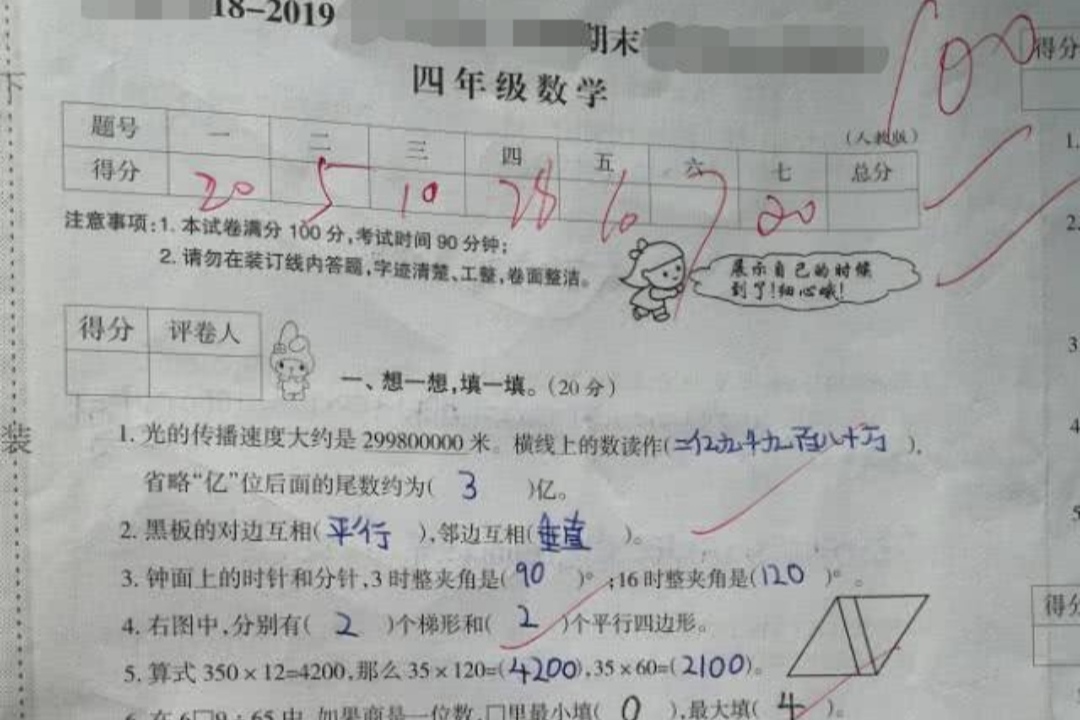 18-2019
期末
四年级数学
100
(人教版)
题号 一 二 三 四 五 六 七 总分
得分 20 5 10 28 10 7 20
注意事项:1. 本试卷满分 100 分,考试时间 90 分钟;
2. 请勿在装订线内答题,字迹清楚、工整,卷面整洁。
展示自己的时候
到了!细心哦!
得分 评卷人
一、想一想,填一填。(20 分)
1. 光的传播速度大约是 299800000 米。横线上的数读作(二亿九千九百八十万 ),
省略“亿”位后面的尾数约为( 3 )亿。
2. 黑板的对边互相( 平行 ),邻边互相( 垂直 )。
3. 钟面上的时针和分针,3 时整夹角是( 90 )°;16 时整夹角是(120 )°。
4. 右图中,分别有( 2 )个梯形和( 2 )个平行四边形。
5. 算式 350×12=4200,那么 35×120=(4200),35×60=(2100)。
6. 在 6□9÷65 中,如果商是一位数,□里最小填( 0 ),最大填( 4 )。
下
装
得分
1.
2.
3
4
5
得分